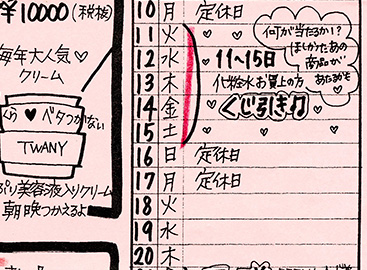 ¥10000(税抜)
毎年大人気♡
クリーム
♥ベタつかない
TWANY
ぷり美容液入りクリーム
朝晩つかえるよ
10 月 定休日
11 火
12 水 11〜15日
13 木 化粧水お買上の方
14 金 くじ引き
15 土
16 日 定休日
17 月 定休日
18 火
19 水
20 木
何が当たるか!?
ほしかったあの
商品が
あたるかも